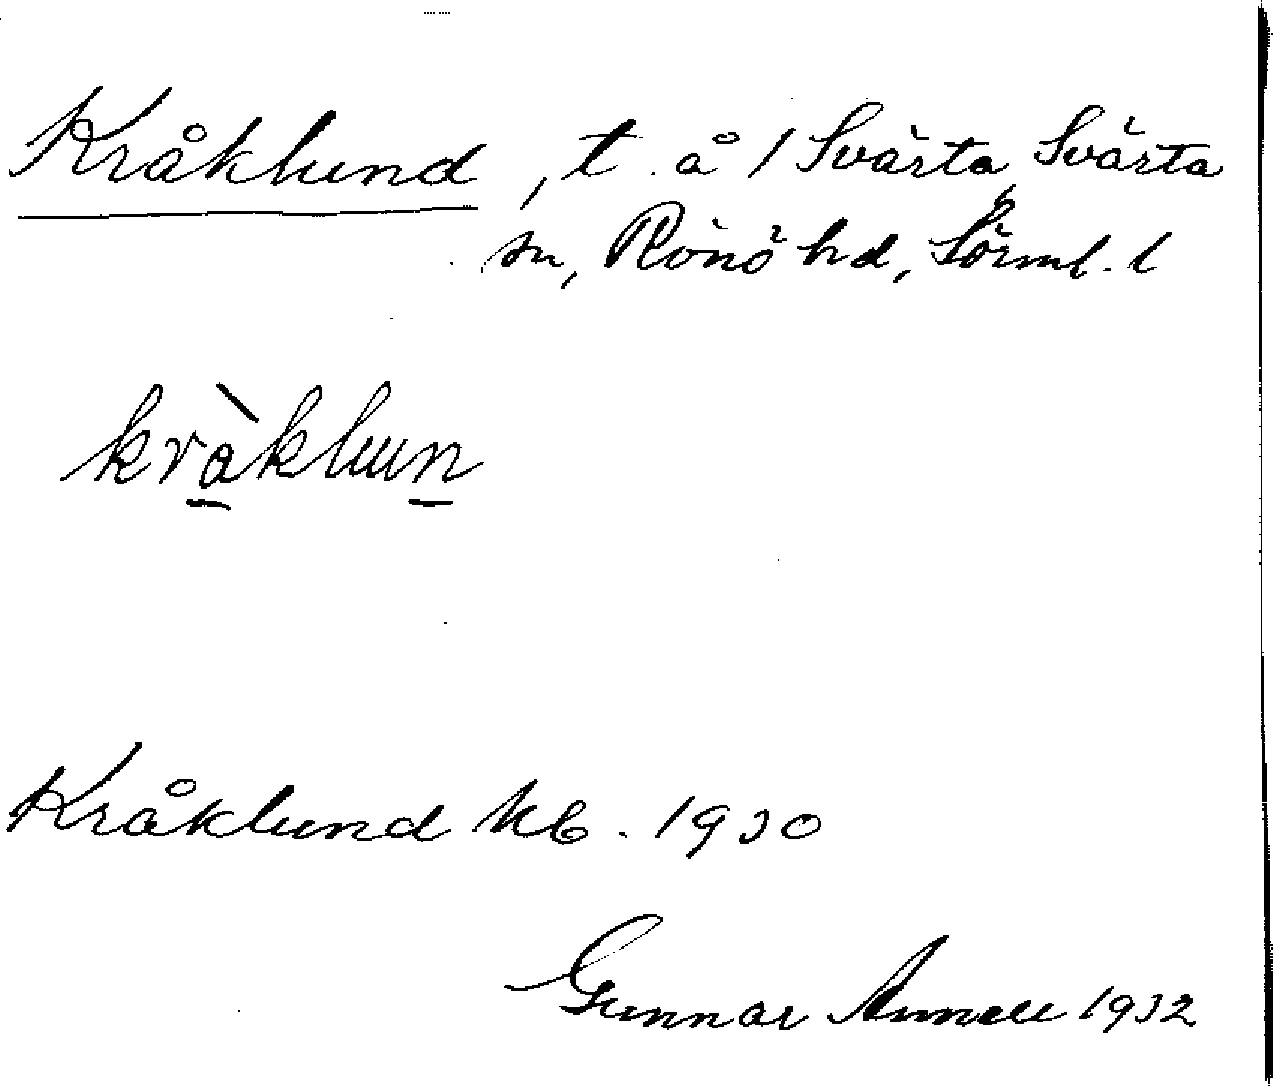 Kråklund, t. å 1 Svärta, Svärta
sn, Rönö hd, Sörml. l
kràklun
Kråklund kb. 1930
Gunnar Annell 1932